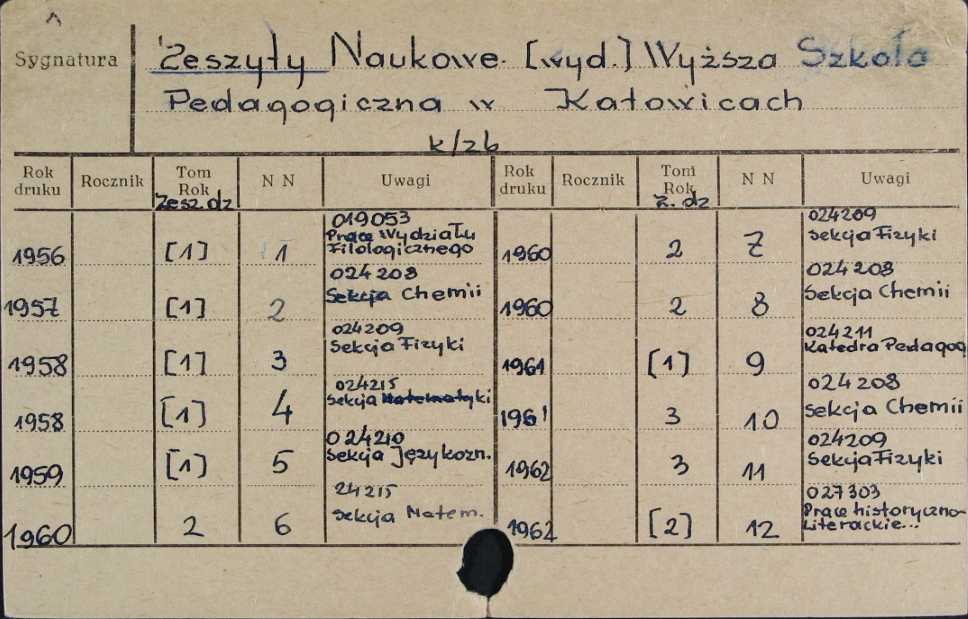 Sygnatura
Zeszyty Naukowe. [wyd.] Wyższa Szkoła
Pedagogiczna w Katowicach
k/zb
Rok druku Rocznik Tom Rok N N Uwagi Rok druku Rocznik Tom Rok N N Uwagi
Zesz. dz z. dz
1956 [1] 1 019053 Prace Wydziału Filologicznego
1957 [1] 2 024208 Sekcja Chemii
1958 [1] 3 024209 Sekcja Fizyki
1958 [1] 4 024215 Sekcja Matematyki
1959 [1] 5 024210 Sekcja Językozn.
1960 2 6 24215 Sekcja Matem.
1960 2 7 024209 Sekcja Fizyki
1960 2 8 024208 Sekcja Chemii
1961 [1] 9 024211 Katedra Pedagog
1961 3 10 024208 Sekcja Chemii
1962 3 11 024209 Sekcja Fizyki
1962 [2] 12 027303 Prace historyczno-Literackie...